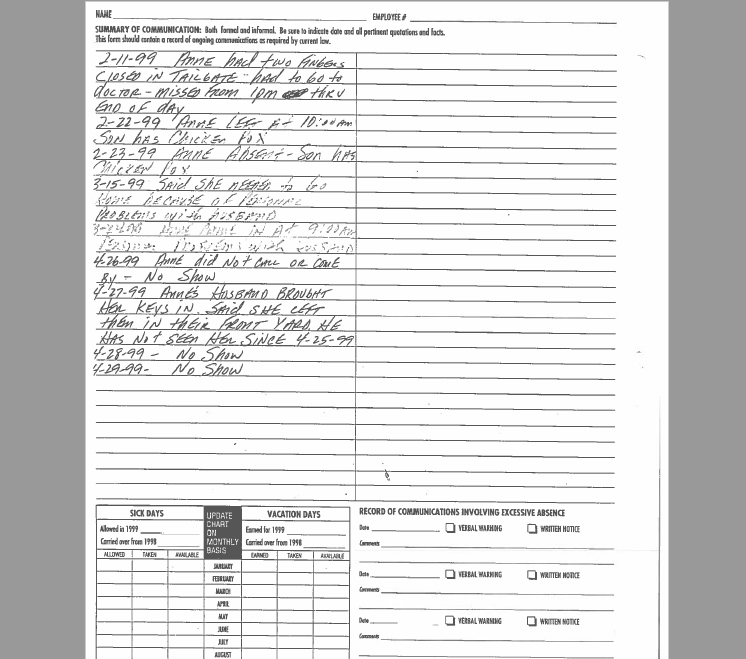 NAME EMPLOYEE #
SUMMARY OF COMMUNICATION: Both formal and informal. Be sure to indicate date and all pertinent quotations and facts.
This form should contain a record of ongoing communications as required by current law.
2-11-99 ANNE had two FINGERS
CLOSED IN TAILGATE - had to GO to
doctor - MISSED FROM 1PM thru
END OF dAY
2-22-99 ANNE LEFT At 10:00AM
SON HAS CHICKEN POX
2-23-99 ANNE ABSENT - SON HAS
CHICKEN POX
3-15-99 SAID SHE NEEDED to GO
HOME BECAUSE OF PERSONAL
PROBLEMS with HUSBAND
CAME IN At 9:00AM
PERSONAL PROBLEMS with HUSBAND
4-26-99 ANNE did NOT CALL OR COME
By - NO SHOW
4-27-99 ANNE'S HUSBAND BROUGHT
HER KEYS IN. SAID SHE LEFT
THEM IN THEIR FRONT YARD. HE
HAS NOT SEEN HER SINCE 4-25-99
4-28-99 - NO SHOW
4-29-99- NO SHOW
SICK DAYS
Allowed in 1999
Carried over from 1998
ALLOWED TAKEN AVAILABLE
UPDATE
CHART
ON
MONTHLY
BASIS
VACATION DAYS
Earned for 1999
Carried over from 1998
EARNED TAKEN AVAILABLE
JANUARY
FEBRUARY
MARCH
APRIL
MAY
JUNE
JULY
AUGUST
RECORD OF COMMUNICATIONS INVOLVING EXCESSIVE ABSENCE
Date VERBAL WARNING WRITTEN NOTICE
Comments
Date VERBAL WARNING WRITTEN NOTICE
Comments
Date VERBAL WARNING WRITTEN NOTICE
Comments